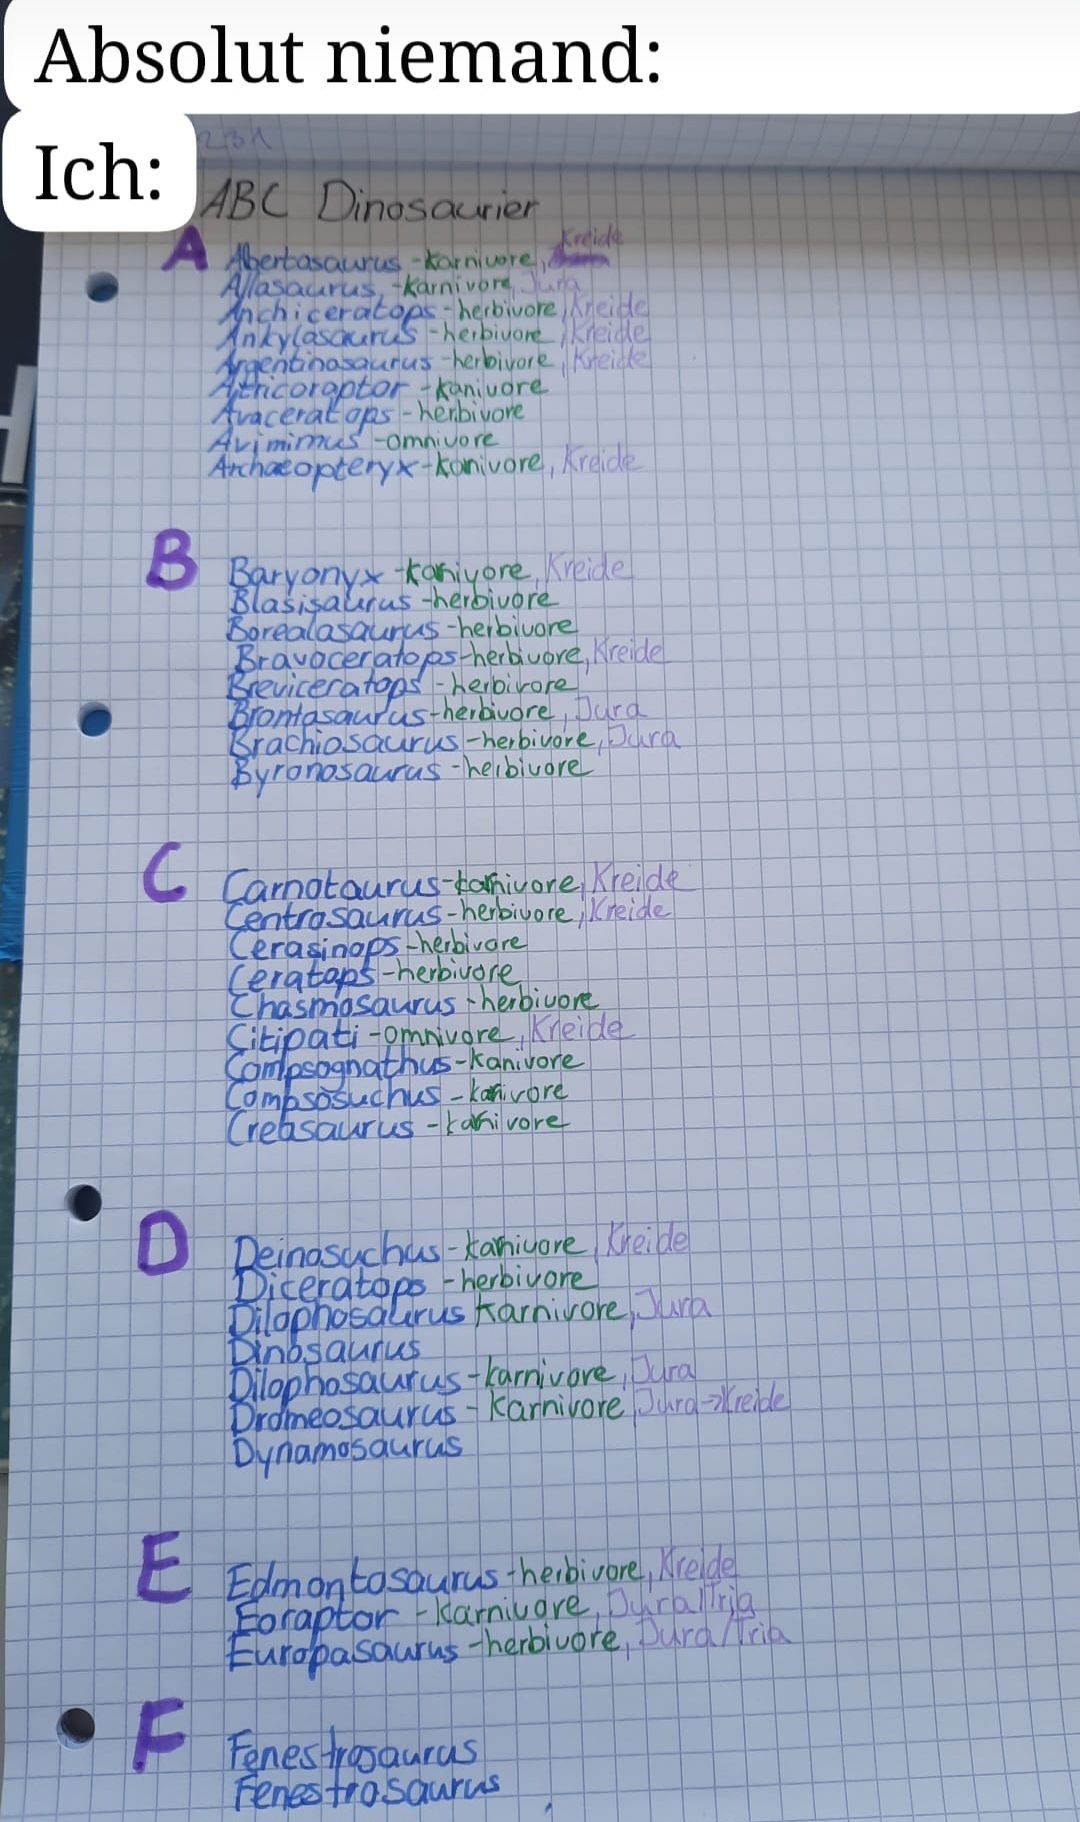 Absolut niemand:
Ich:
ABC Dinosaurier
A
Kreide
Albertosaurus -Karnivore,
Allasaurus, -Karnivore, Jura
Anchiceratops -herbivore, Kreide
Ankylosaurus -herbivore, Kreide
Argentinosaurus -herbivore, Kreide
Atricoraptor -Kanivore
Avaceratops -herbivore
Avimimus -omnivore
Archaeopteryx -Kanivore, Kreide
B
Baryonyx -Kanivore, Kreide
Blasisaurus -herbivore
Borealasaurus -herbivore
Bravoceratops -herbivore, Kreide
Breviceratops -herbivore
Brontasaurus -herbivore, Jura
Brachiosaurus -herbivore, Jura
Byronosaurus -herbivore
C
Carnotaurus -karnivore, Kreide
Centrosaurus -herbivore, Kreide
Cerasinops -herbivore
Ceratops -herbivore
Chasmosaurus -herbivore
Citipati -omnivore, Kreide
Compsognathus -Kanivore
Compsosuchus -karivore
Creasaurus -kanivore
D
Deinosuchus -kanivore, Kreide
Diceratops -herbivore
Dilophosaurus Karnivore, Jura
Dinosaurus
Dilophosaurus -karnivore, Jura
Dromeosaurus - Karnivore, Jura->Kreide
Dynamosaurus
E
Edmontosaurus -herbivore, Kreide
Eoraptor -Karnivore, Jura/Tria
Europasaurus -herbivore, Jura/Tria
F
Fenestrosaurus
Fenestrosaurus